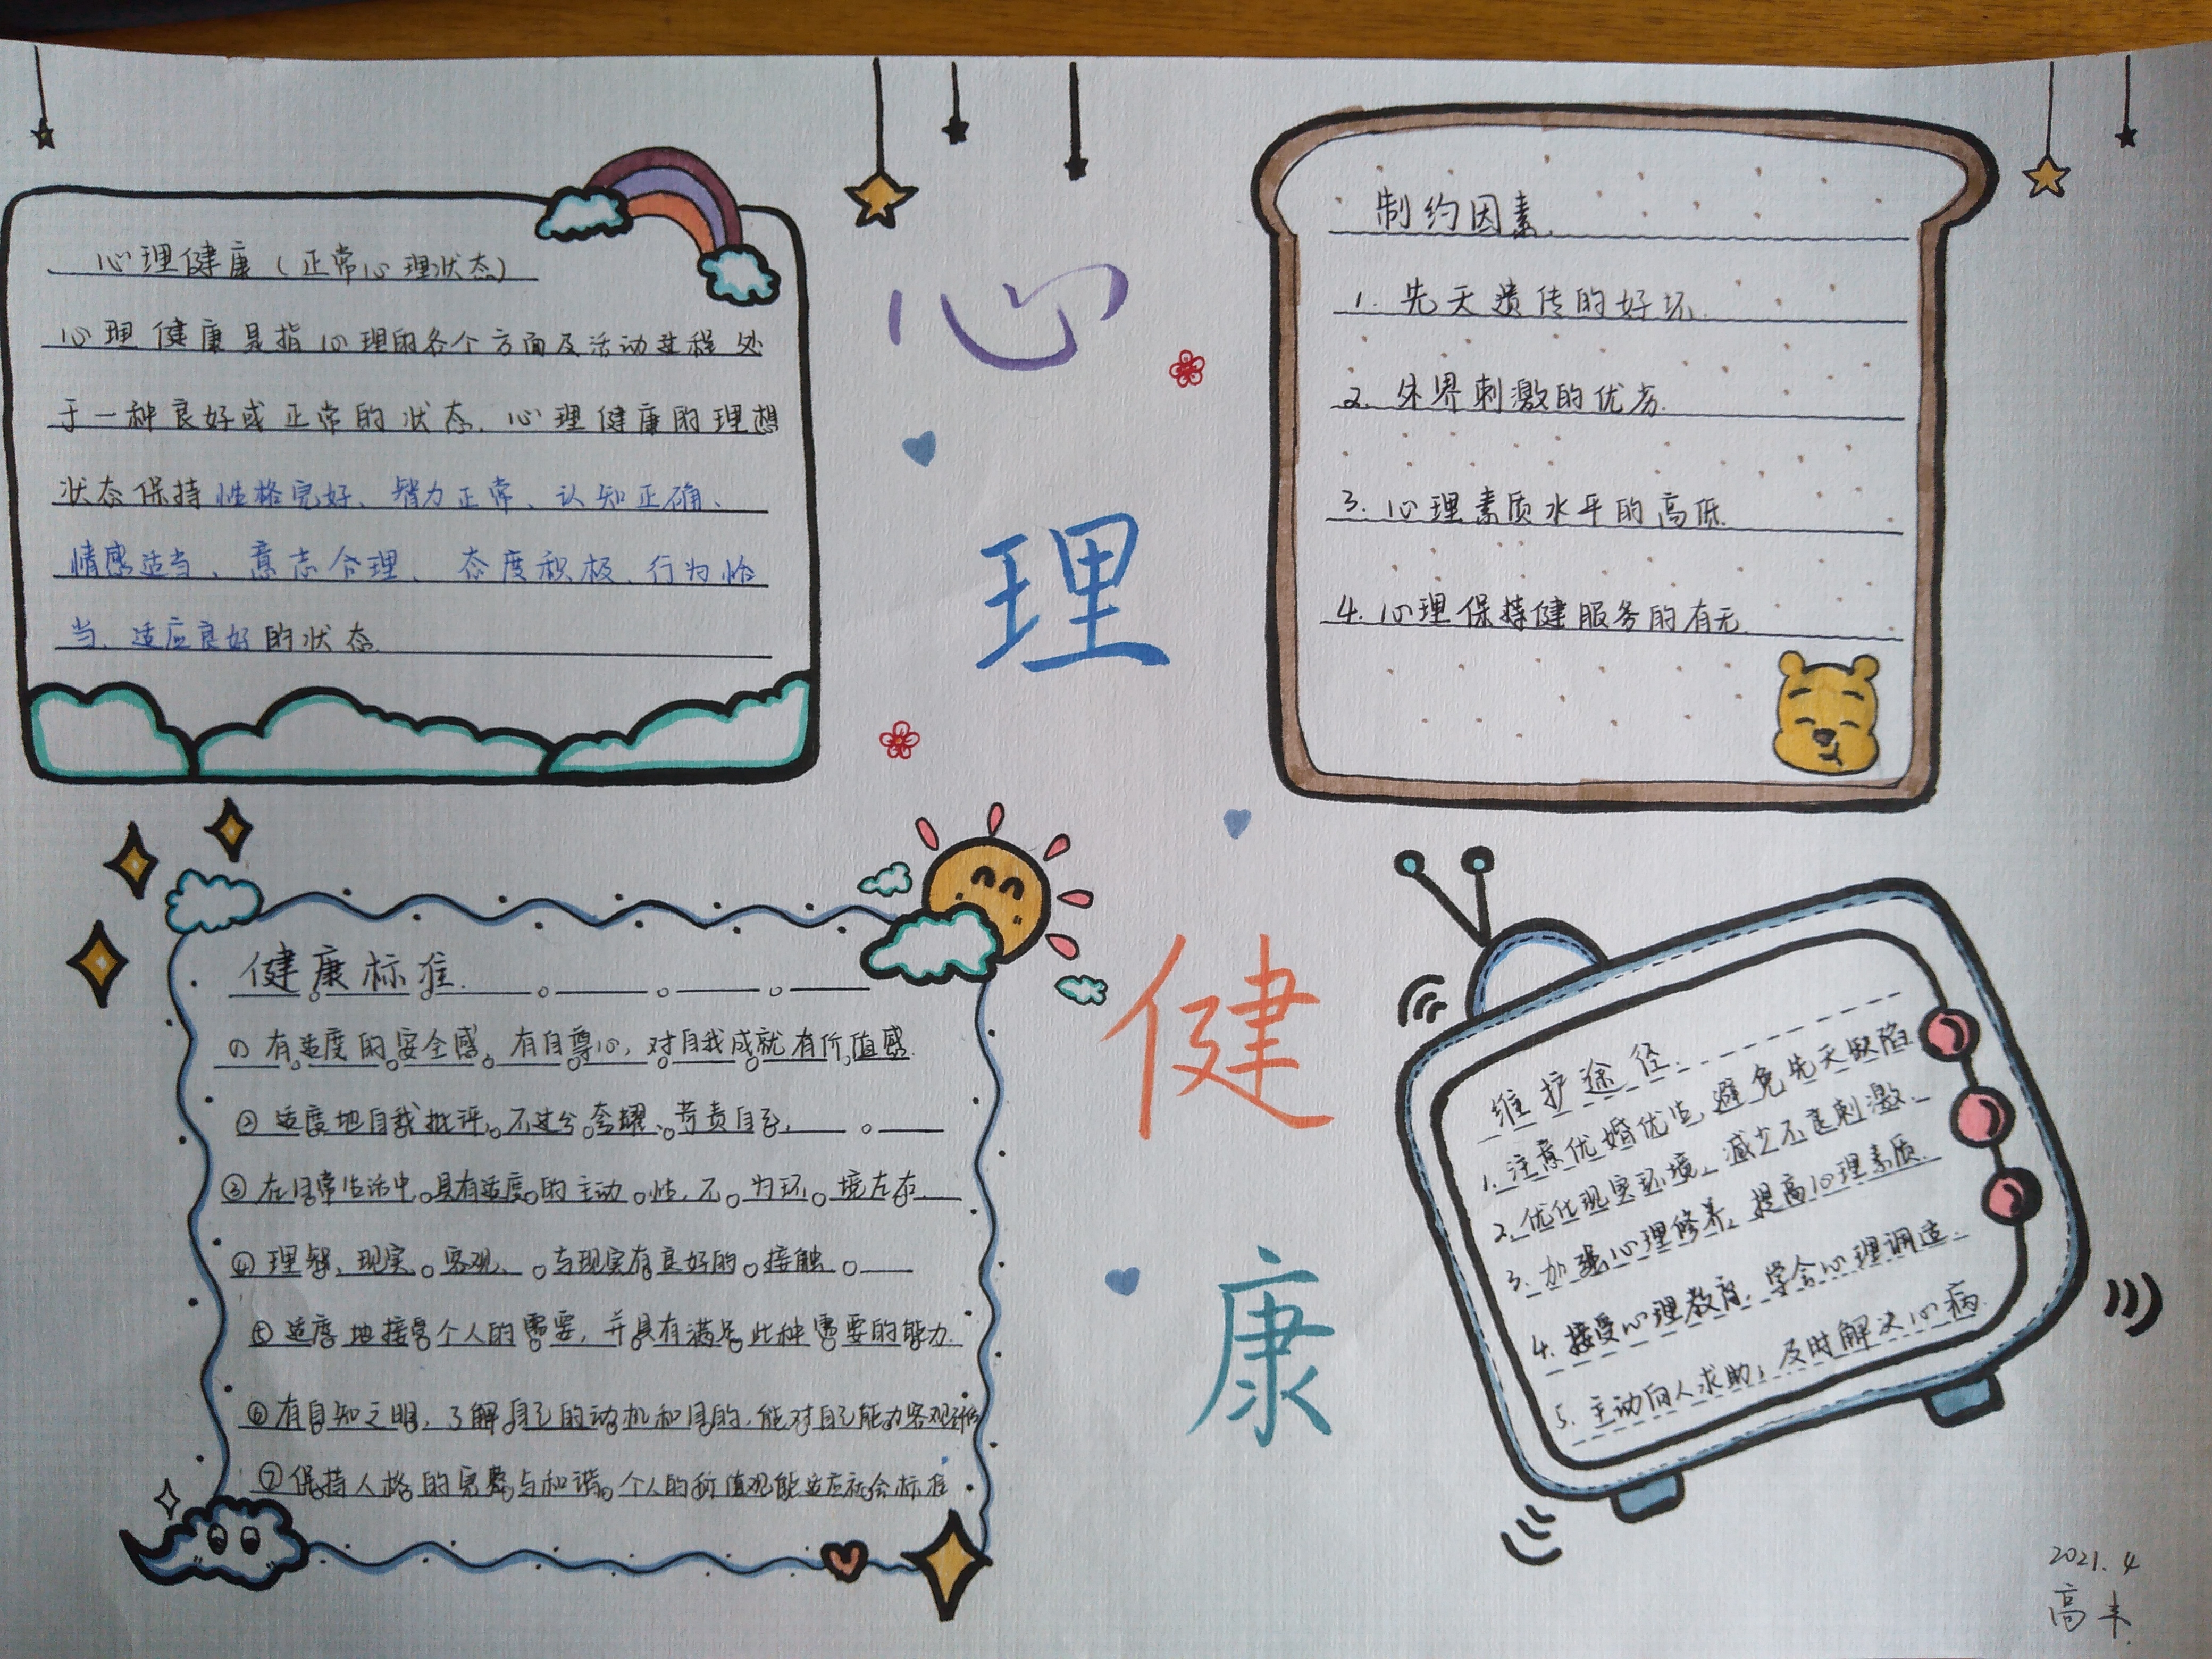 心理健康（正常心理状态）
心理健康是指心理的各个方面及活动过程处
于一种良好或正常的状态.心理健康的理想
状态保持性格完好、智力正常、认知正确、
情感适当、意志合理、态度积极、行为恰
当、适应良好的状态.
心
理
健
康
制约因素.
1. 先天遗传的好坏.
2. 外界刺激的优劣.
3. 心理素质水平的高低.
4. 心理保持健服务的有无.
健康标准.
① 有适度的安全感,有自尊心,对自我成就有价值感.
② 适度地自我批评,不过分夸耀、苛责自己.
③ 在日常生活中,具有适度的主动性,不为环境左右.
④ 理智、现实、客观、与现实有良好的接触
⑤ 适度地接受个人的需要,并具有满足此种需要的能力.
⑥ 有自知之明,了解自己的动机和目的,能对自己能力客观评估
⑦ 保持人格的完整与和谐,个人的价值观能适应社会标准
维护途径.
1. 注意优婚优生,避免先天缺陷.
2. 优化现实环境,减少不良刺激.
3. 加强心理修养,提高心理素质.
4. 接受心理教育,学会心理调适.
5. 主动向人求助,及时解决心病.
2021.4
高丰